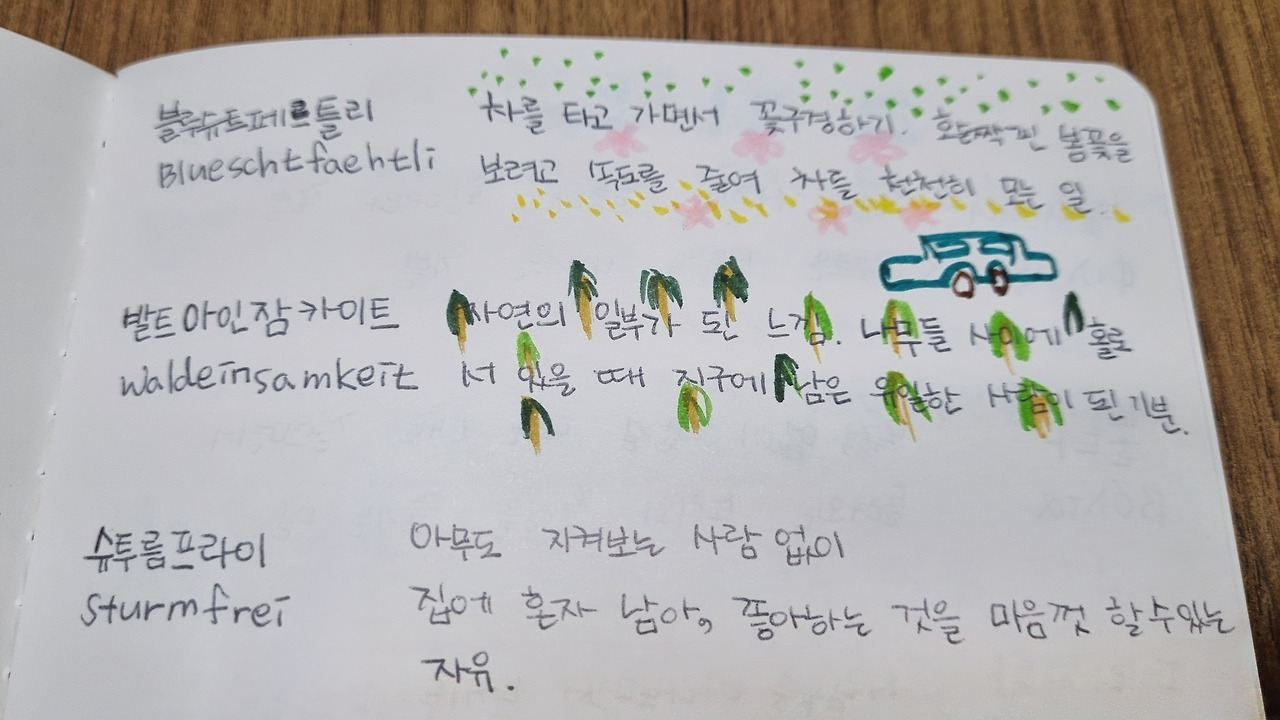 블루슈트페르틀리 차를 타고 가면서 꽃구경하기. 활짝 핀 봄꽃을
Blueschtfaehtli 보려고 속도를 줄여 차를 천천히 모는 일.
발트아인잠카이트 자연의 일부가 된 느낌. 나무들 사이에 홀로
waldeinsamkeit 서 있을 때 지구에 남은 유일한 사람이 된 기분.
슈투름프라이 아무도 지켜보는 사람 없이
sturmfrei 집에 혼자 남아, 좋아하는 것을 마음껏 할 수 있는
자유.